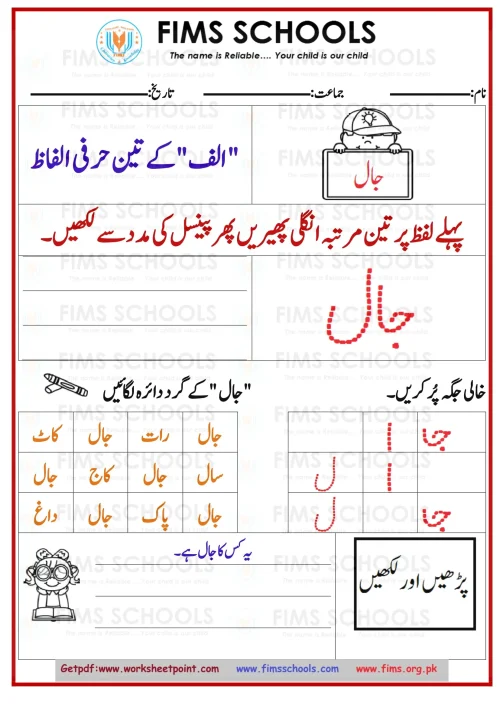 FIMS SCHOOLS
The name is Reliable.... Your child is our child
نام: جماعت: تاریخ:
جال
"الف" کے تین حرفی الفاظ
پہلے لفظ پر تین مرتبہ انگلی پھیریں پھر پینسل کی مدد سے لکھیں۔
جال
خالی جگہ پُر کریں۔
جا ا
ا ل
جا ل
"جال" کے گرد دائرہ لگائیں
جال رات جال کاٹ
سال جال کاج جال
جال پاک جال داغ
پڑھیں اور لکھیں
یہ کس کا جال ہے۔
Getpdf:www.worksheetpoint.com www.fimsschools.com www.fims.org.pk